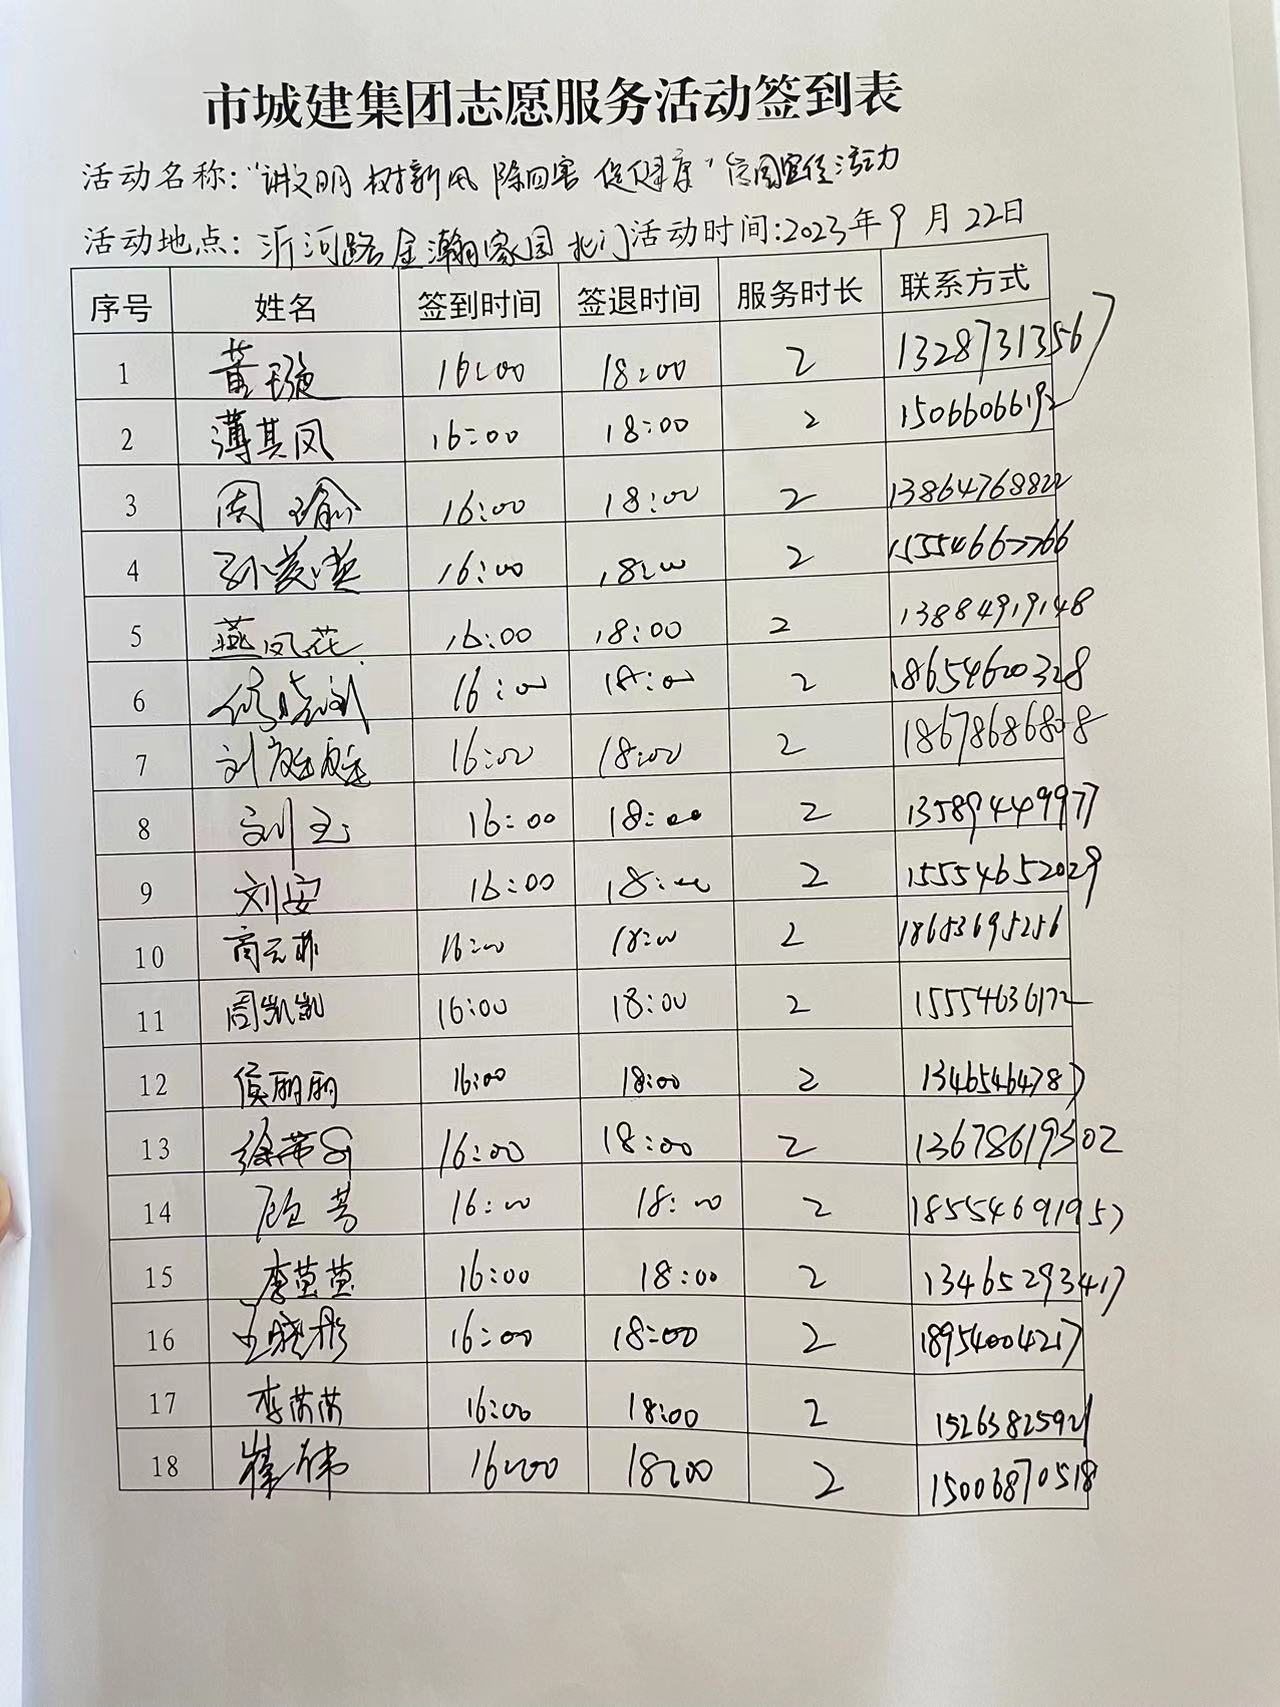 市城建集团志愿服务活动签到表
活动名称:"讲文明 树新风 除四害 促健康"宣传活动
活动地点: 沂河路金瀚家园北门 活动时间:2023年9月22日
序号 姓名 签到时间 签退时间 服务时长 联系方式
1 黄璇 16:00 18:00 2 1328731356
2 薄其凤 16:00 18:00 2 15066066192
3 周瑜 16:00 18:00 2 13864768822
4 孙美英 16:00 18:00 2 15554667766
5 燕凤花 16:00 18:00 2 13884919148
6 16:00 18:00 2 18654600328
7 刘庭庭 16:00 18:00 2 18678686808
8 刘玉 16:00 18:00 2 13589449977
9 刘安 16:00 18:00 2 15554652029
10 商云菲 16:00 18:00 2 18653695256
11 周凯凯 16:00 18:00 2 15554636172
12 侯丽丽 16:00 18:00 2 13465464787
13 16:00 18:00 2 13678619302
14 顾芳 16:00 18:00 2 18554691957
15 李莹莹 16:00 18:00 2 13465293417
16 王晓彤 16:00 18:00 2 18954004217
17 李芮芮 16:00 18:00 2 15263825921
18 崔伟 16:00 18:00 2 15006870518